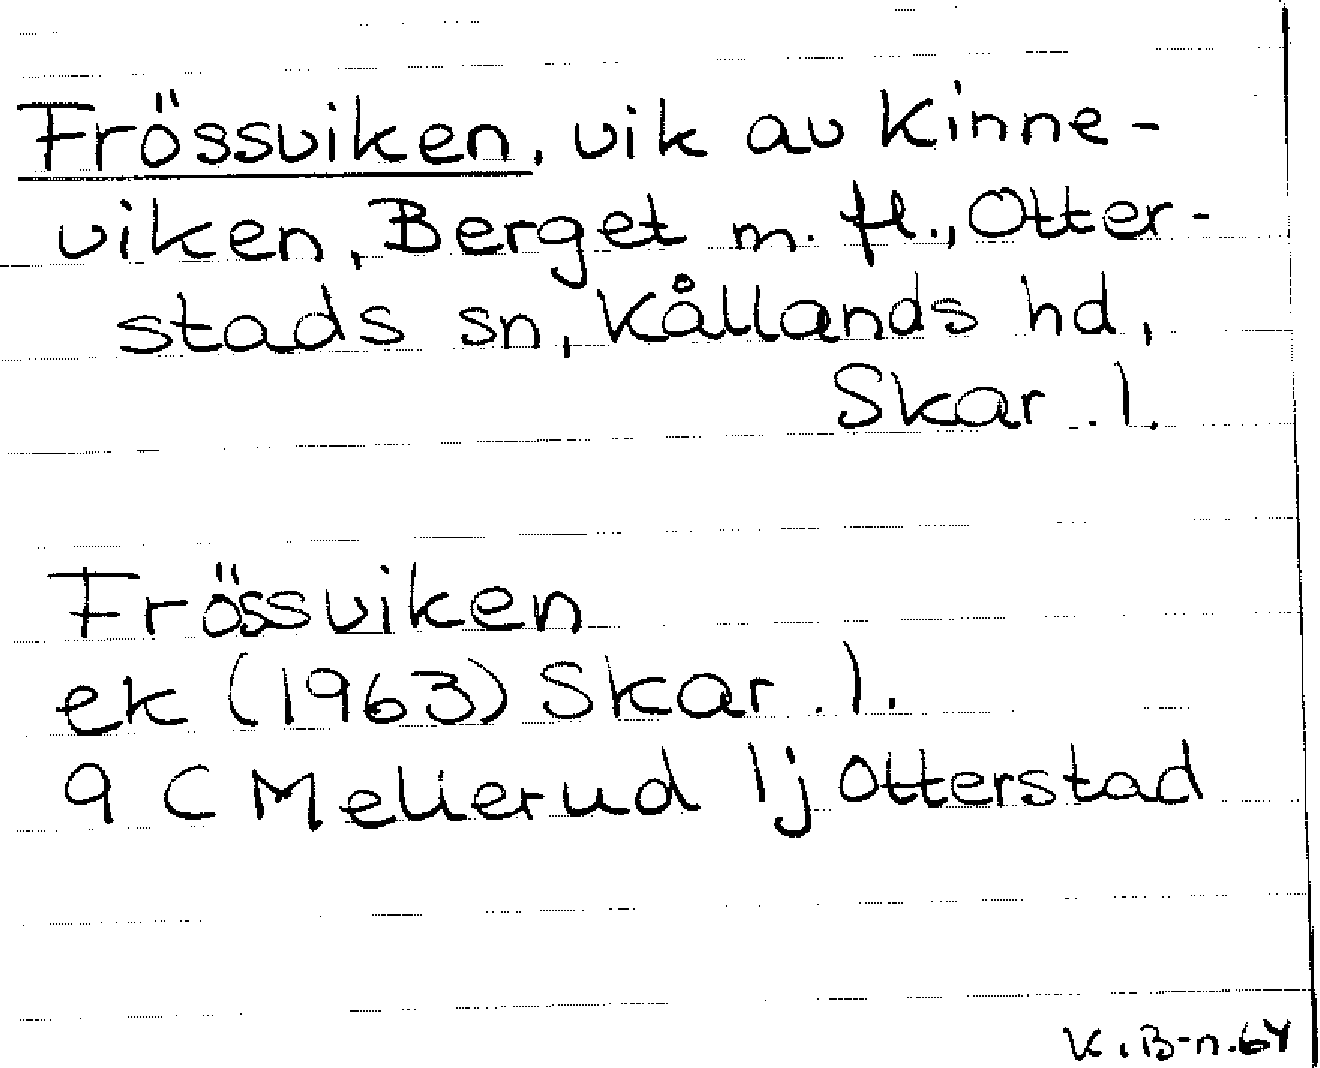 Frössviken, vik av Kinne-
viken, Berget m. fl., Otter-
stads sn, Kållands hd,
Skar. l.
Frössviken
ek (1963) Skar. l.
9 C Mellerud 1j Otterstad
K. B-n. 64